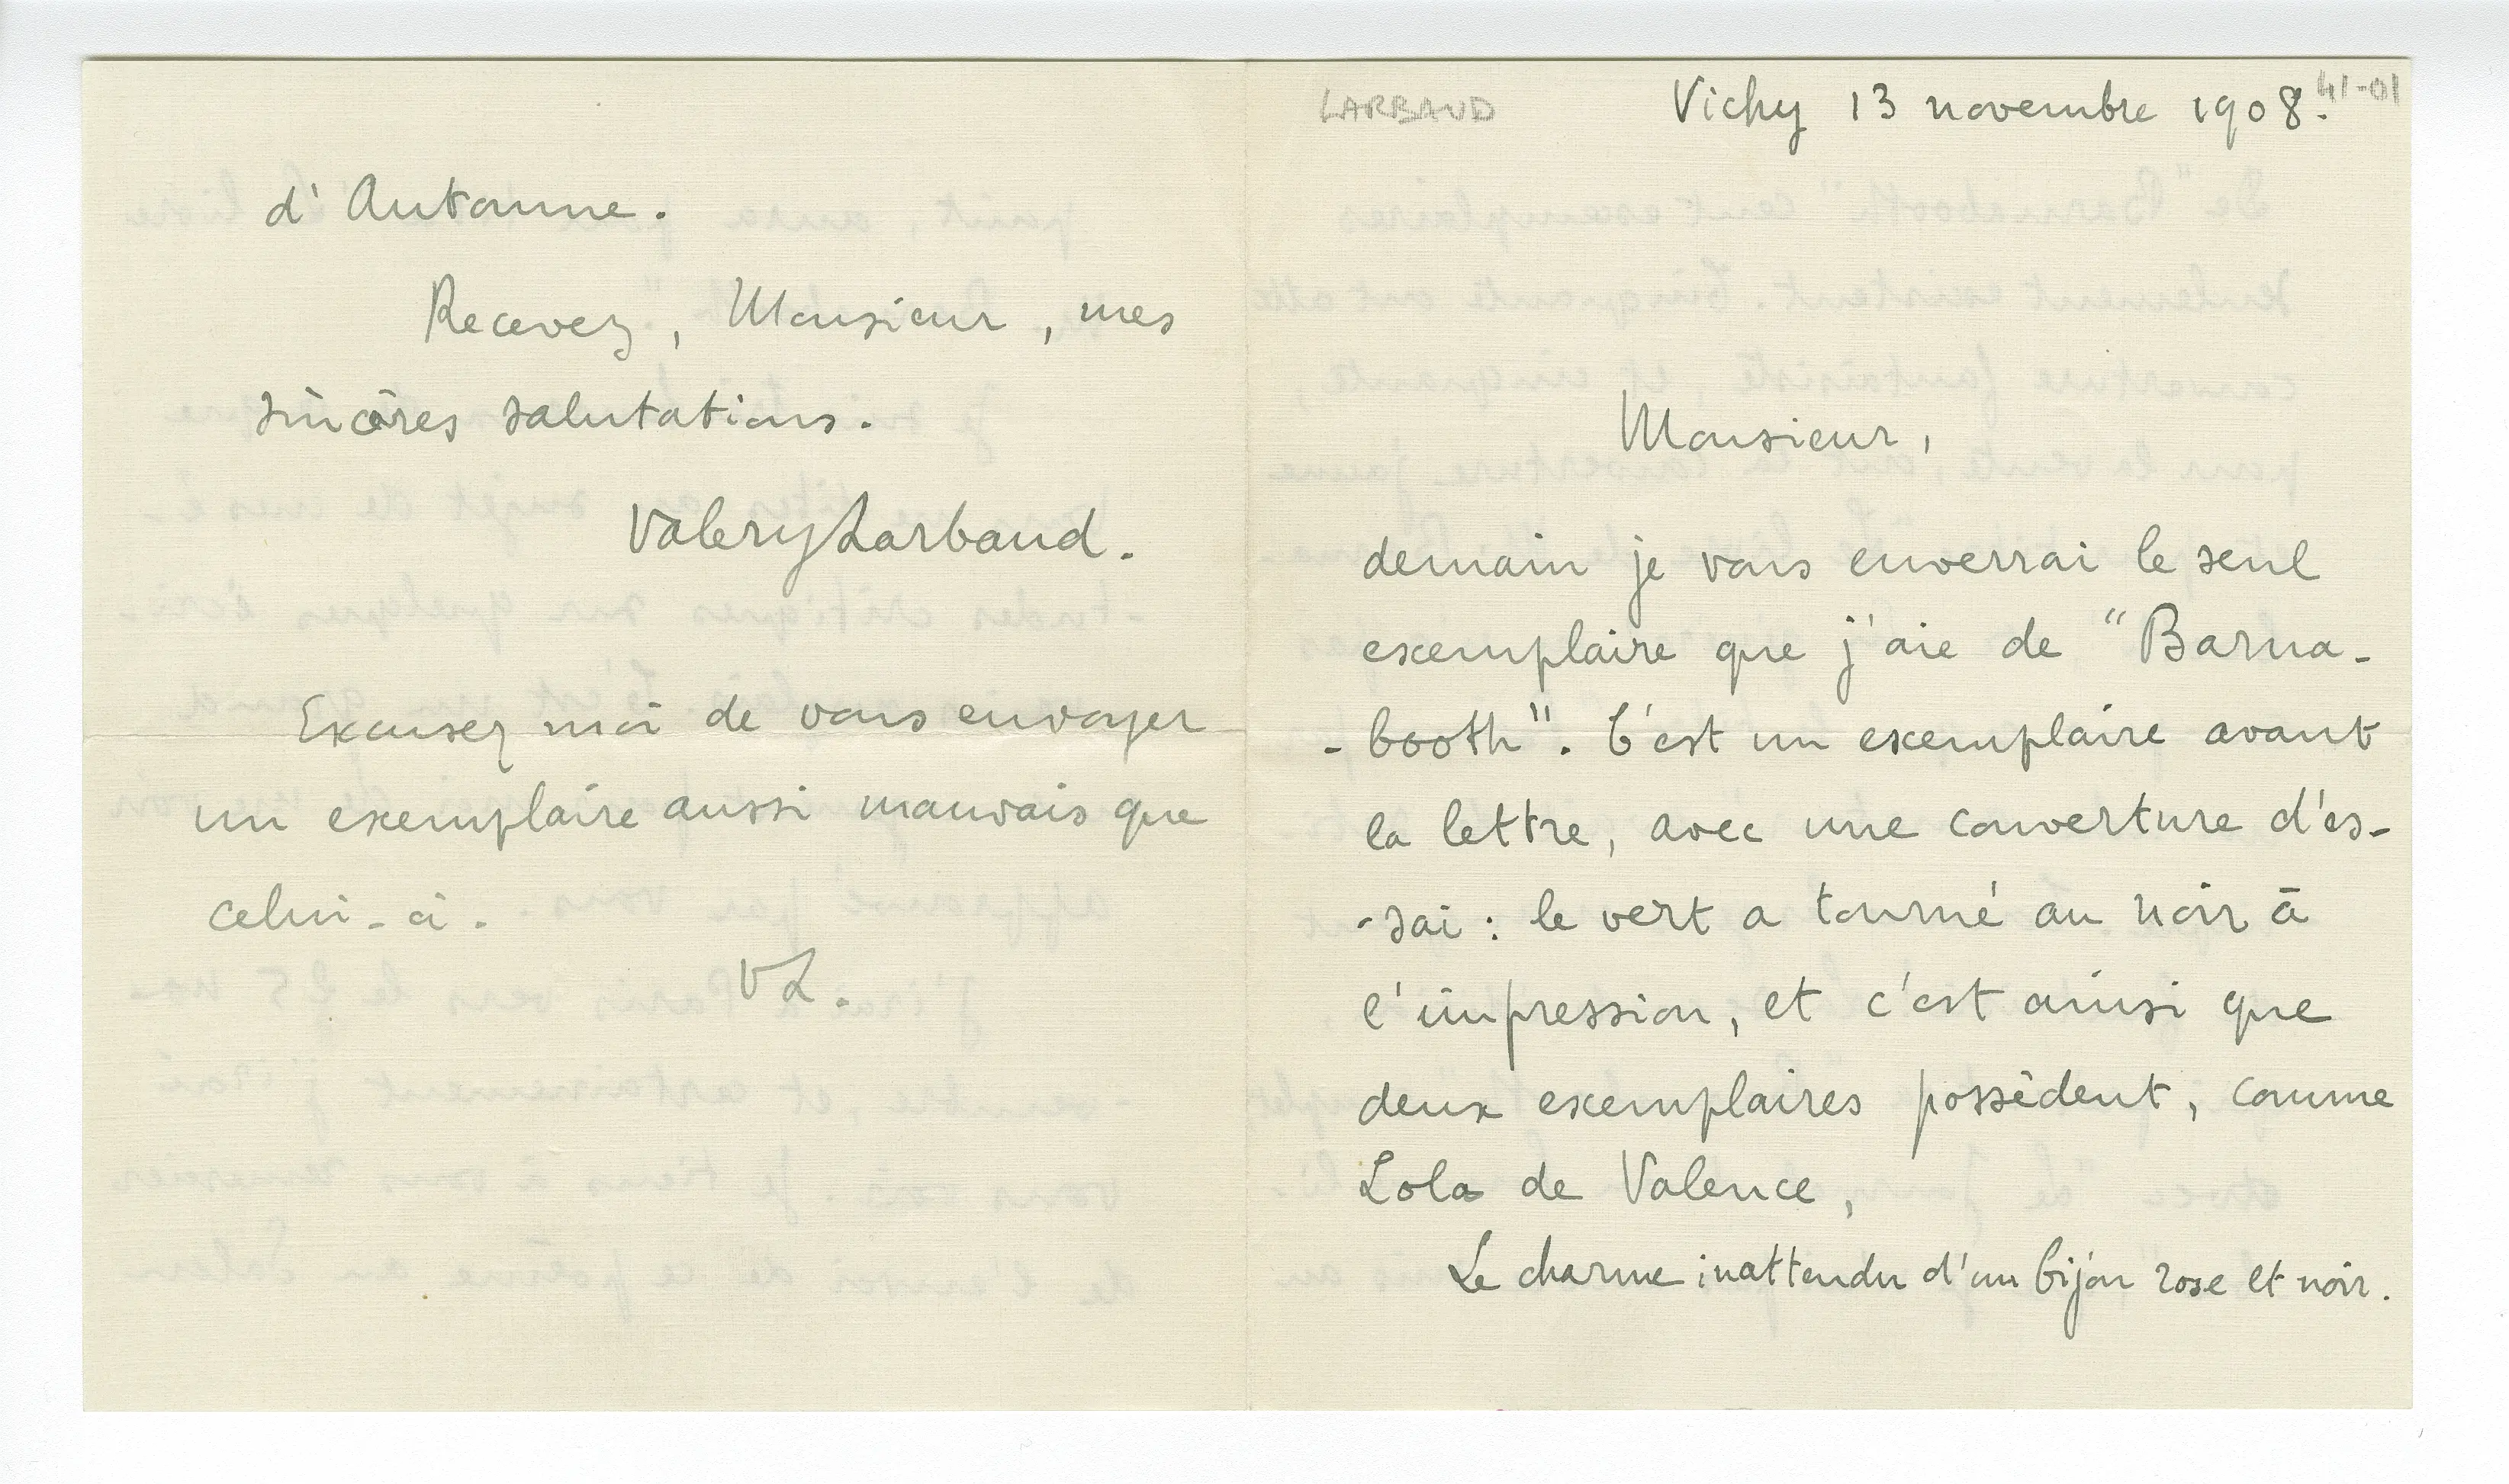 LARBAUD
Vichy 13 novembre 1908.
41-01
Monsieur,
demain je vous enverrai le seul
exemplaire que j'aie de "Barna-
-booth". C'est un exemplaire avant
la lettre, avec une couverture d'es-
-sai : le vert a tourné au noir à
l'impression, et c'est ainsi que
deux exemplaires possèdent, comme
Lola de Valence,
Le charme inattendu d'un bijou rose et noir.
d'Automne.
Recevez, Monsieur, mes
sincères salutations.
Valery Larbaud.
Excusez moi de vous envoyer
un exemplaire aussi mauvais que
celui-ci.
VL.